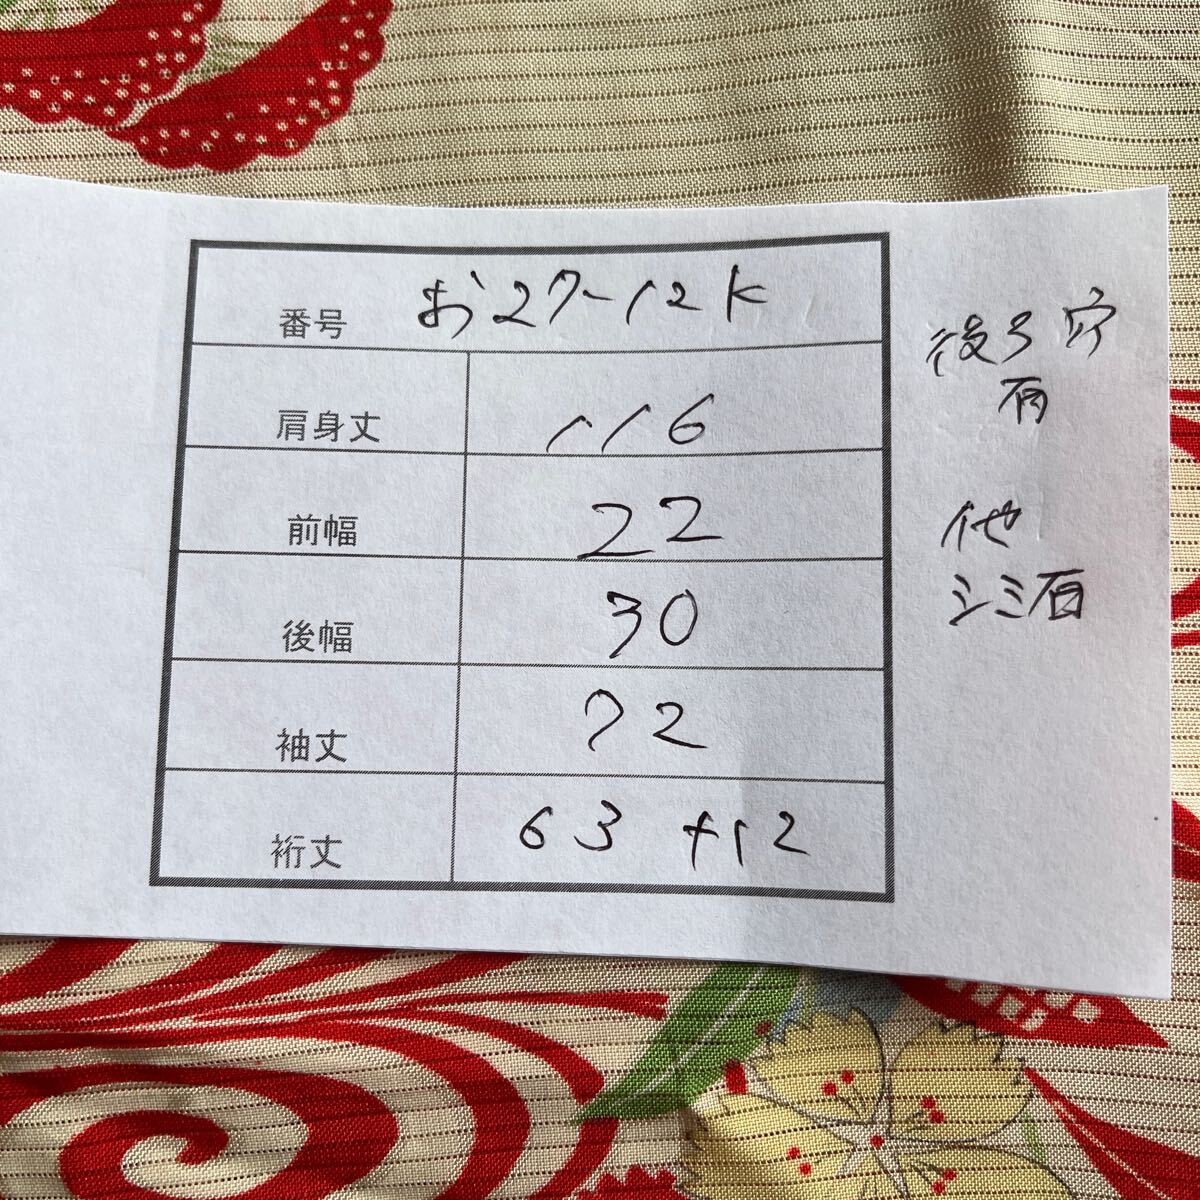 番号 お27-12K
肩身丈 116
前幅 22
後幅 30
袖丈 72
裄丈 63 +12
穴
有
他
シミ有